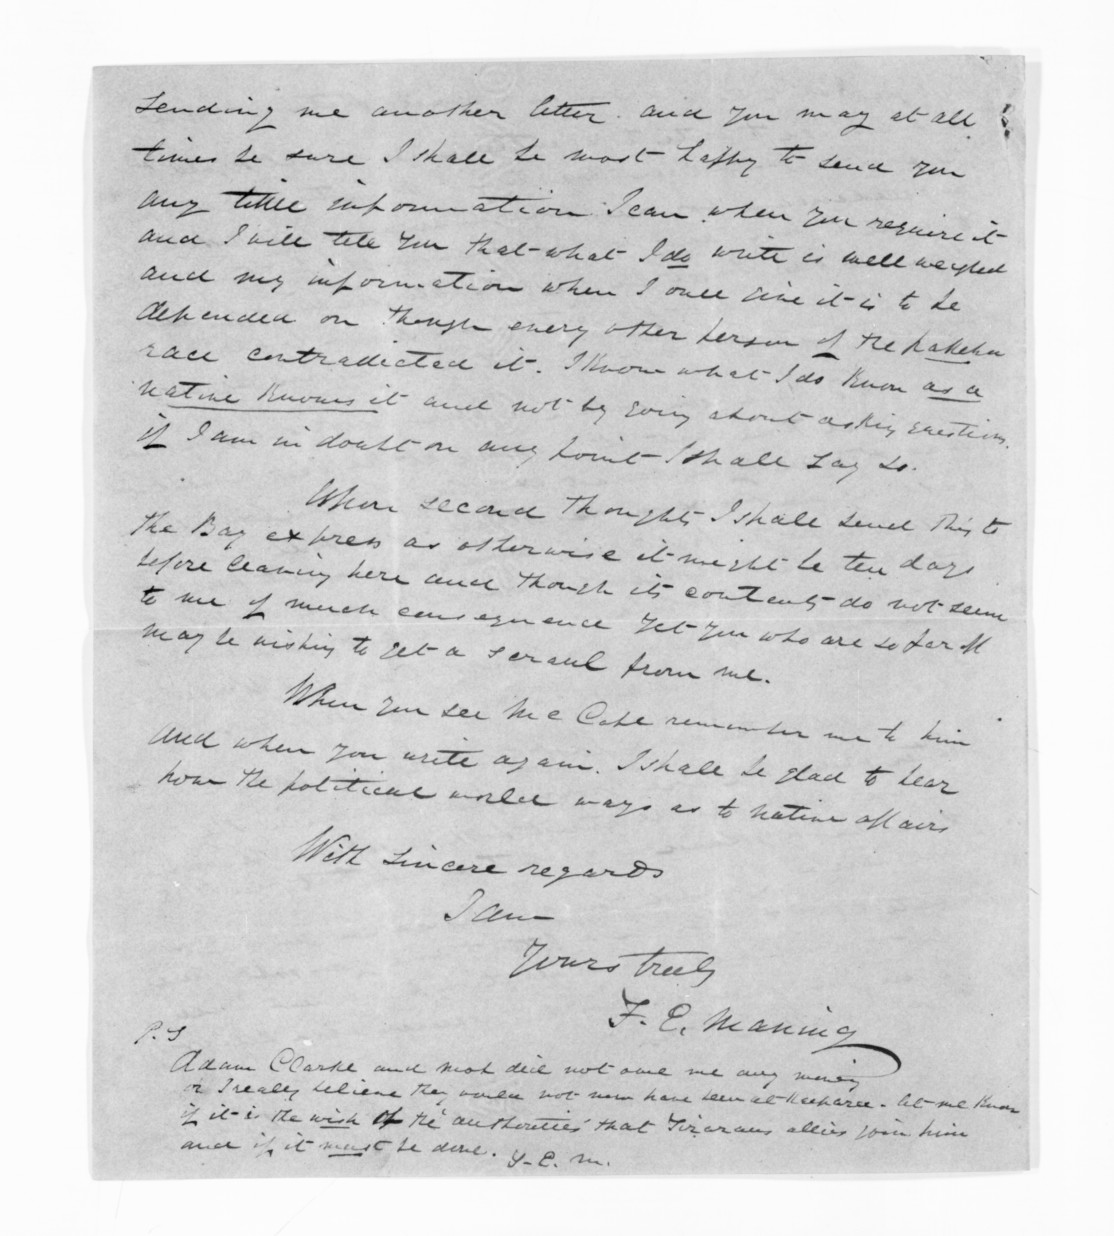 sending me another letter. and you may at all
times be sure I shall be most happy to send you
any little information I can when you require it
and I will tell you that what I do write is well weighed
and my information when I once give it is to be
depended on though every other person of the pakeha
race contradicted it. I know what I do know as a
native knows it and not by going about asking questions.
if I am in doubt on any point I shall say so.
Upon second thoughts I shall send this to
the Bay express as otherwise it might be ten days
before leaving here and though its contents do not seem
to me of much consequence yet you who are so far off
may be wishing to get a scrawl from me.
When you see Mc Cabe remember me to him
and when you write again. I shall be glad to hear
how the political world wags as to native affairs
With sincere regards
I am
Yours truly
F. E. Maning
P.S
Adam Clarke and did not owe me any money
or I really believe they would not now have been at. let me know
if it is the wish of the authorities that allies join him
and if it must be done. F. E. M.